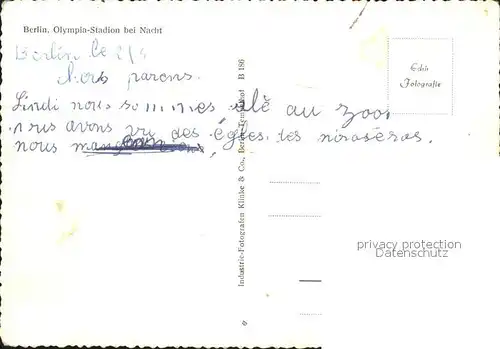 Berlin, Olympia-Stadion bei Nacht
Berlin le 2/4
chers parens.
Lindi nous sommes alé au zoo,
nus avons vu des égles, les rinoséros.
nous
Industrie-Fotografen Klinke & Co., Berlin-Tempelhof B 186
Echte
Fotografie
privacy protection
Datenschutz